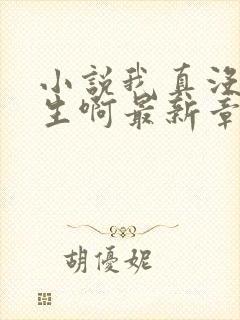 小說我真沒
生啊最新章
胡優妮